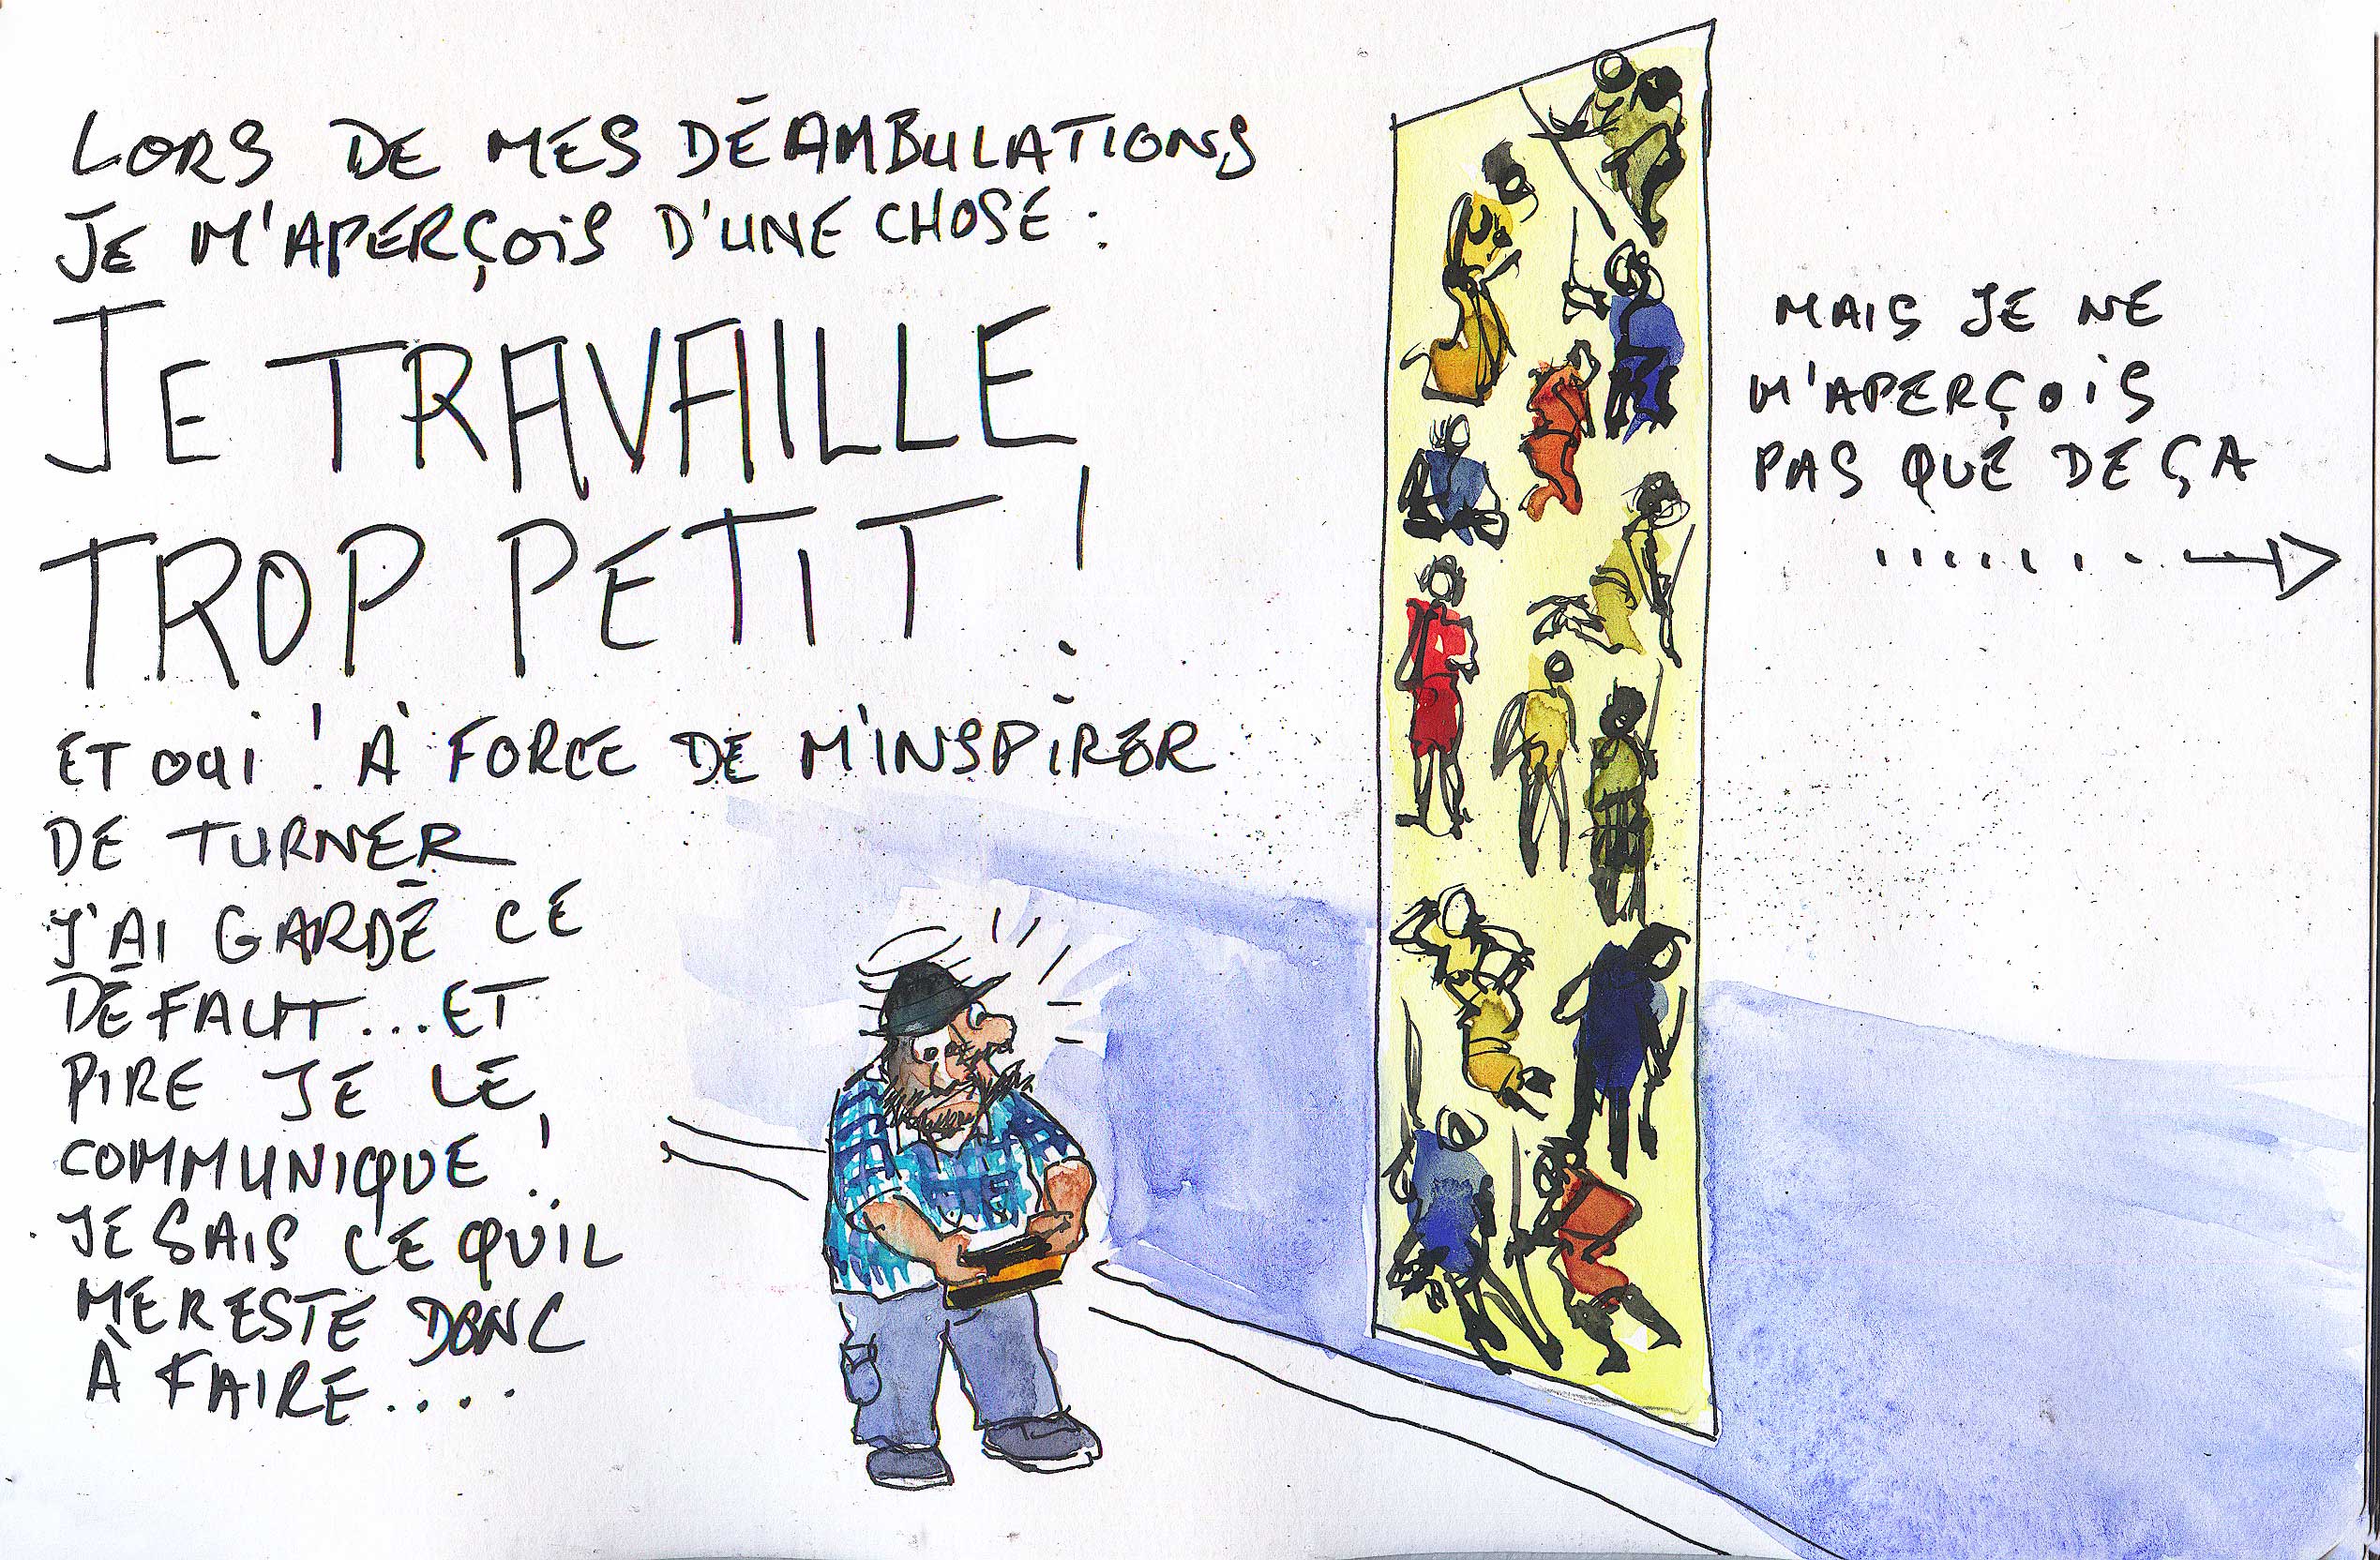 LORS DE MES DÉAMBULATIONS
JE M'APERÇOIS D'UNE CHOSE :
JE TRAVAILLE
TROP PETIT !
ET OUI ! À FORCE DE M'INSPIRER
DE TURNER
J'AI GARDÉ CE
DÉFAUT... ET
PIRE JE LE
COMMUNIQUE !
JE SAIS CE QU'IL
ME RESTE DONC
À FAIRE....
MAIS JE NE
M'APERÇOIS
PAS QUE DE ÇA